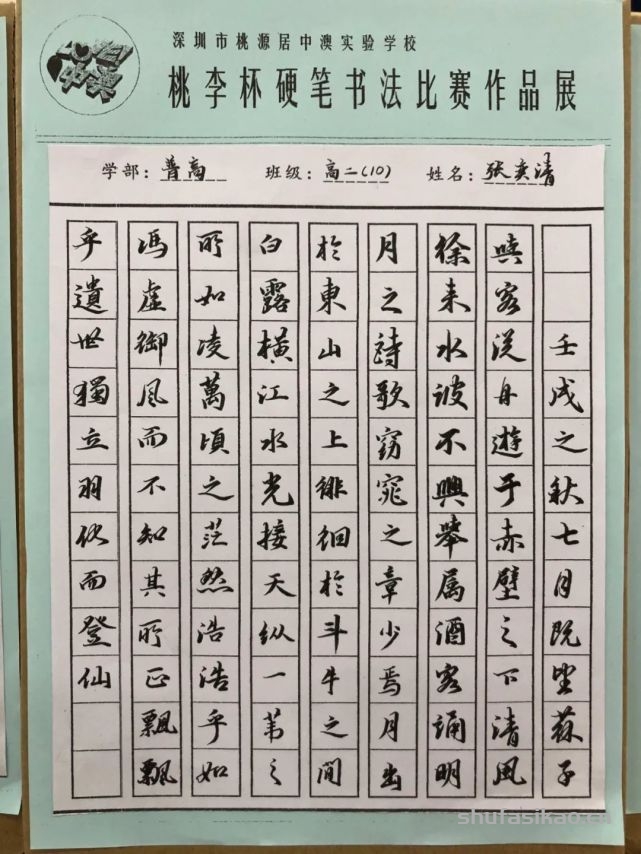 深圳市桃源居中澳实验学校
桃李杯硬笔书法比赛作品展
学部：普高 班级：高二(10) 姓名：张奕清
壬戌之秋七月既望蘇子
與客泛舟遊于赤壁之下清風
徐来水波不興舉属酒客誦明
月之詩歌窈窕之章少焉月出
於東山之上徘徊於斗牛之間
白露横江水光接天纵一苇之
所如凌萬頃之茫然浩浩乎如
馮虚御風而不知其所止飄飄
乎遺世獨立羽化而登仙
shufasikao.cn